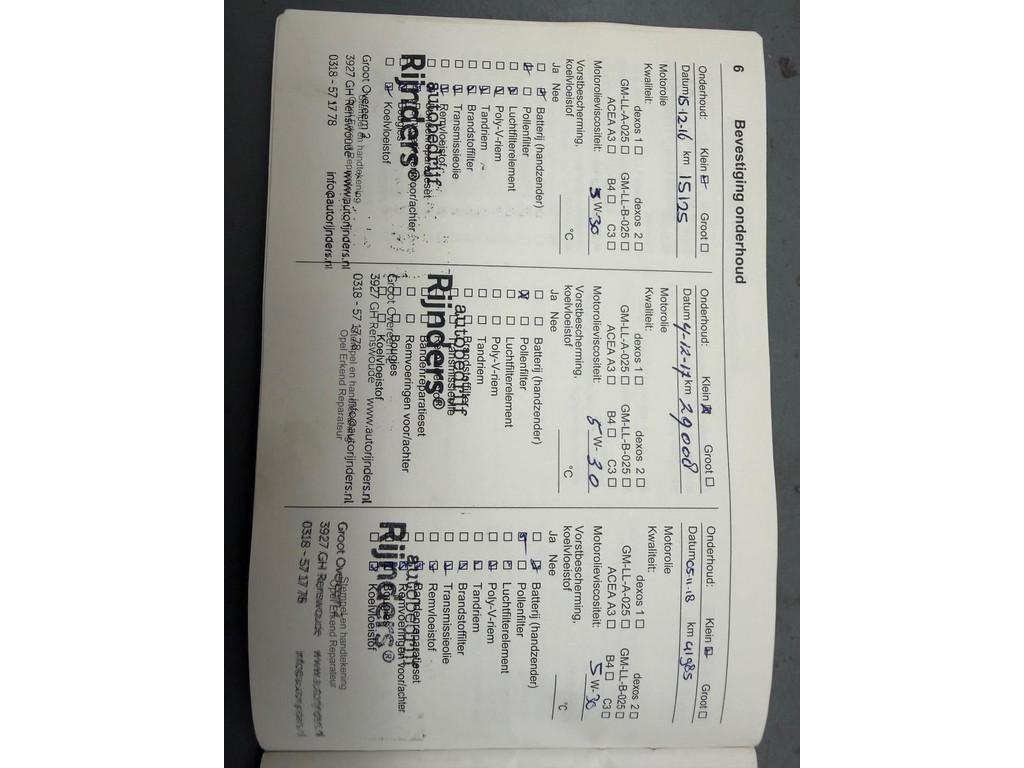 6
Bevestiging onderhoud
Onderhoud: Klein Groot
Datum 15-12-16 km 15125
Motorolie
Kwaliteit: dexos 1 dexos 2
GM-LL-A-025 GM-LL-B-025
ACEA A3 B4 C3
Motorolieviscositeit: 5 W-30
Vorstbescherming,
koelvloeistof °C
Ja Nee
Batterij (handzender)
Pollenfilter
Luchtfilterelement
Poly-V-riem
Tandriem
Brandstoffilter
Transmissieolie
Remvloeistof
autobedrijf
Rijnders®
voor/achter
Koelvloeistof
Groot Overeem 2
Stempel en handtekening
3927 GH Renswoude www.autorijnders.nl
0318 - 57 17 78 info@autorijnders.nl
Onderhoud: Klein Groot
Datum 4-12-17 km 29008
Motorolie
Kwaliteit: dexos 1 dexos 2
GM-LL-A-025 GM-LL-B-025
ACEA A3 B4 C3
Motorolieviscositeit: 5 W-30
Vorstbescherming,
koelvloeistof °C
Ja Nee
Batterij (handzender)
Pollenfilter
Luchtfilterelement
Poly-V-riem
Tandriem
Brandstoffilter
Transmissieolie
autobedrijf
Rijnders®
Bandenreparatieset
Remvoeringen voor/achter
Bougies
Koelvloeistof
Groot Overeem 2
3927 GH Renswoude www.autorijnders.nl
0318 - 57 17 78 info@autorijnders.nl
Stempel en handtekening
Opel Erkend Reparateur
Onderhoud: Klein Groot
Datum 05-11-18 km 41985
Motorolie
Kwaliteit: dexos 1 dexos 2
GM-LL-A-025 GM-LL-B-025
ACEA A3 B4 C3
Motorolieviscositeit: 5 W-30
Vorstbescherming,
koelvloeistof °C
Ja Nee
Batterij (handzender)
Pollenfilter
Luchtfilterelement
Poly-V-riem
Tandriem
Brandstoffilter
Transmissieolie
Remvloeistof
Bandenreparatieset
Remvoeringen voor/achter
autobedrijf
Rijnders®
Koelvloeistof
Stempel en handtekening
Opel Erkend Reparateur
Groot Overeem 2
3927 GH Renswoude www.autorijnders.nl
0318 - 57 17 78 info@autorijnders.nl